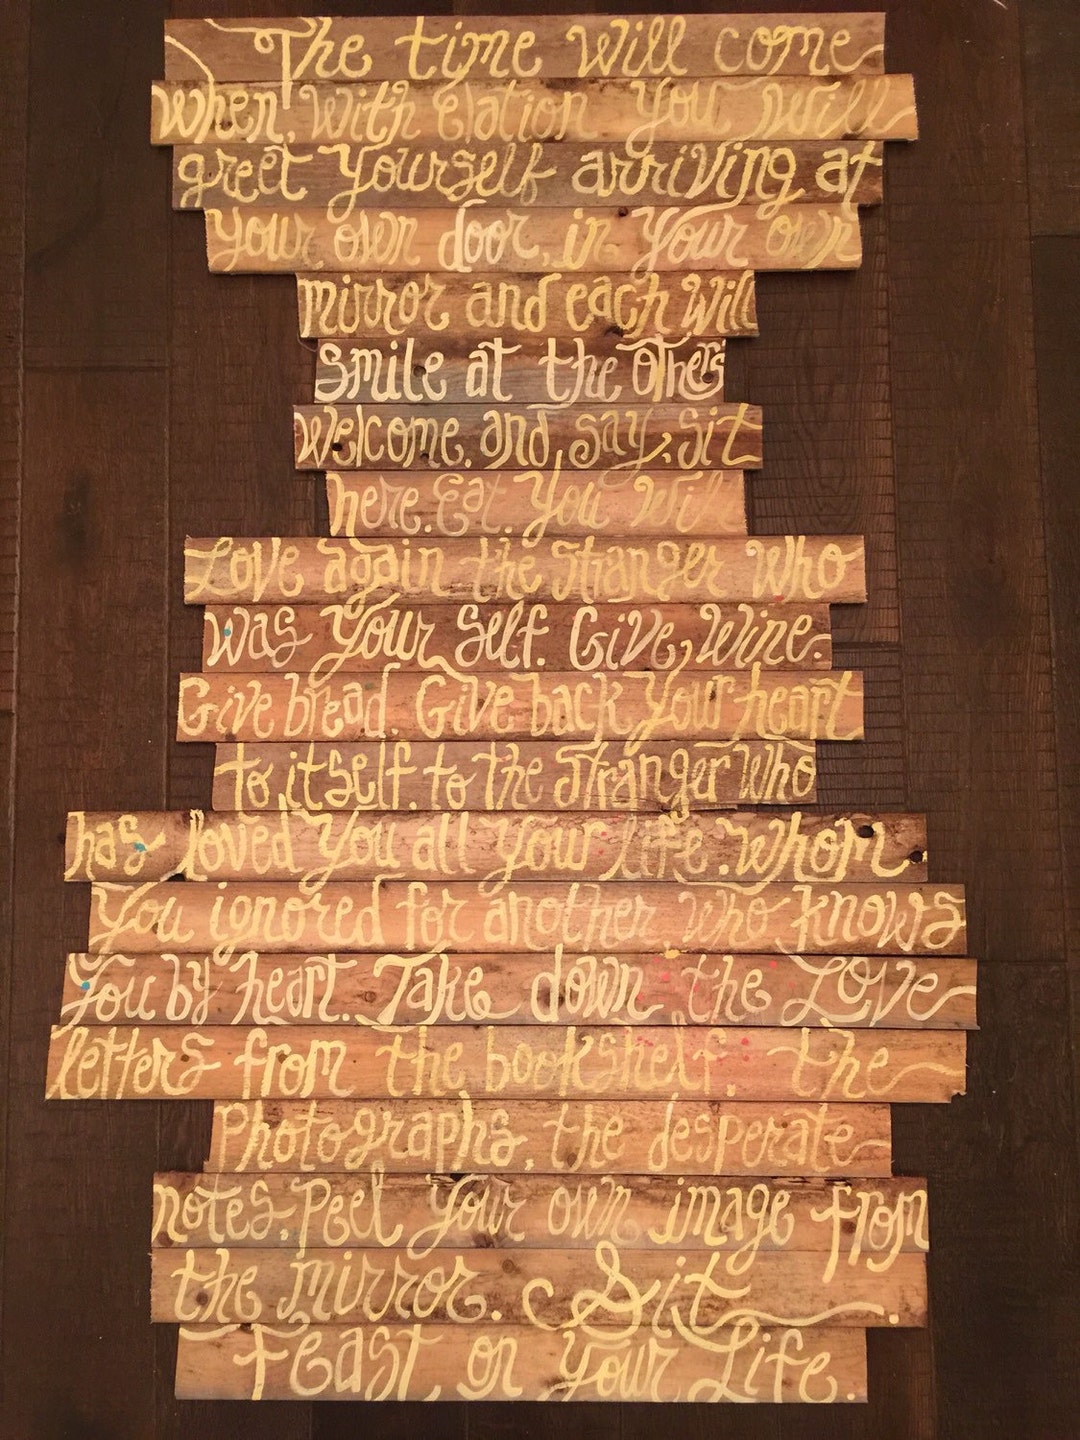 The time will come
when, with elation You will
greet yourself arriving at
your own door, in your own
mirror and each will
smile at the others
welcome, and say, sit
here. Eat. You will
Love again the stranger who
was your self. Give, wine.
Give bread. Give back your heart
to itself, to the stranger who
has loved you all your life, whom
You ignored for another, who knows
you by heart. Take down the Love
letters from the bookshelf, the
Photographs, the desperate
notes, Peel your own image from
the mirror. Sit.
Feast on your Life.